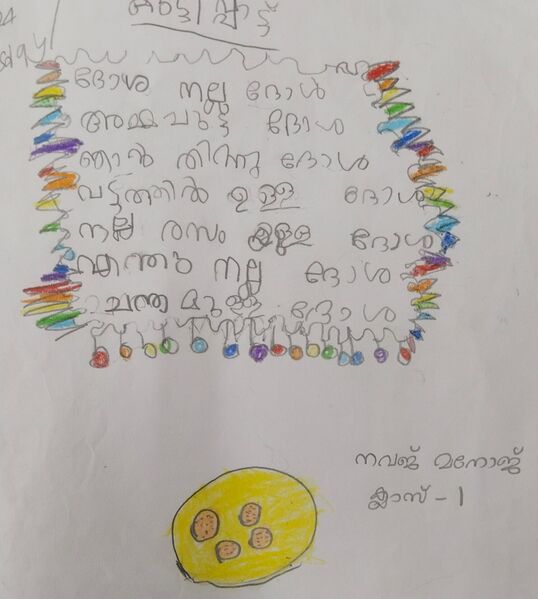 കുട്ടിപ്പാട്ട്
ദോശ നല്ല ദോശ
അമ്മചുട്ട ദോശ
ഞാൻ തിന്നു ദോശ
വട്ടത്തിൽ ഉള്ള ദോശ
നല്ല രസം ഉള്ള ദോശ
എന്തു നല്ല ദോശ
ചന്തമുള്ള ദോശ
നവജ് മനോജ്
ക്ലാസ് - 1